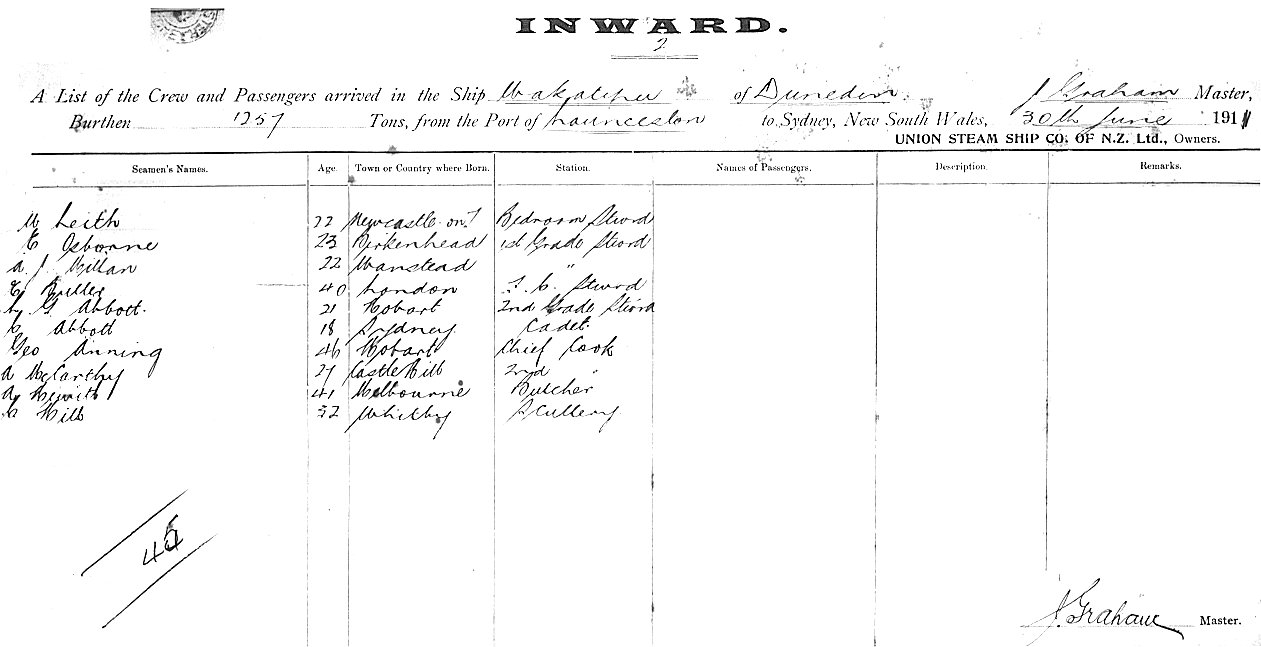 INWARD.
2
A List of the Crew and Passengers arrived in the Ship Wakatipu of Dunedin, J Graham Master,
Burthen 1257 Tons, from the Port of Launceston to Sydney, New South Wales, 30th June 1911
UNION STEAM SHIP CO. OF N.Z. Ltd., Owners.
Seamen's Names. Age. Town or Country where Born. Station. Names of Passengers. Description. Remarks.
W Leith 22 Newcastle on T Bedroom Stword
E Osborne 23 Birkenhead 1st Grade Stword
A. J. Millan 22 Wanstead "
E Butler 40 London S. C. Stword
G Abbott. 21 Hobart 2nd Grade Stword
C Abbott 18 Sydney Cadet.
Geo Anning 46 Hobart Chief Cook
A McCarthy 27 Castle Hill 2nd "
A Hewitt 41 Melbourne Butcher
C Hill 32 Whitby Scullery
45
J. Graham Master.